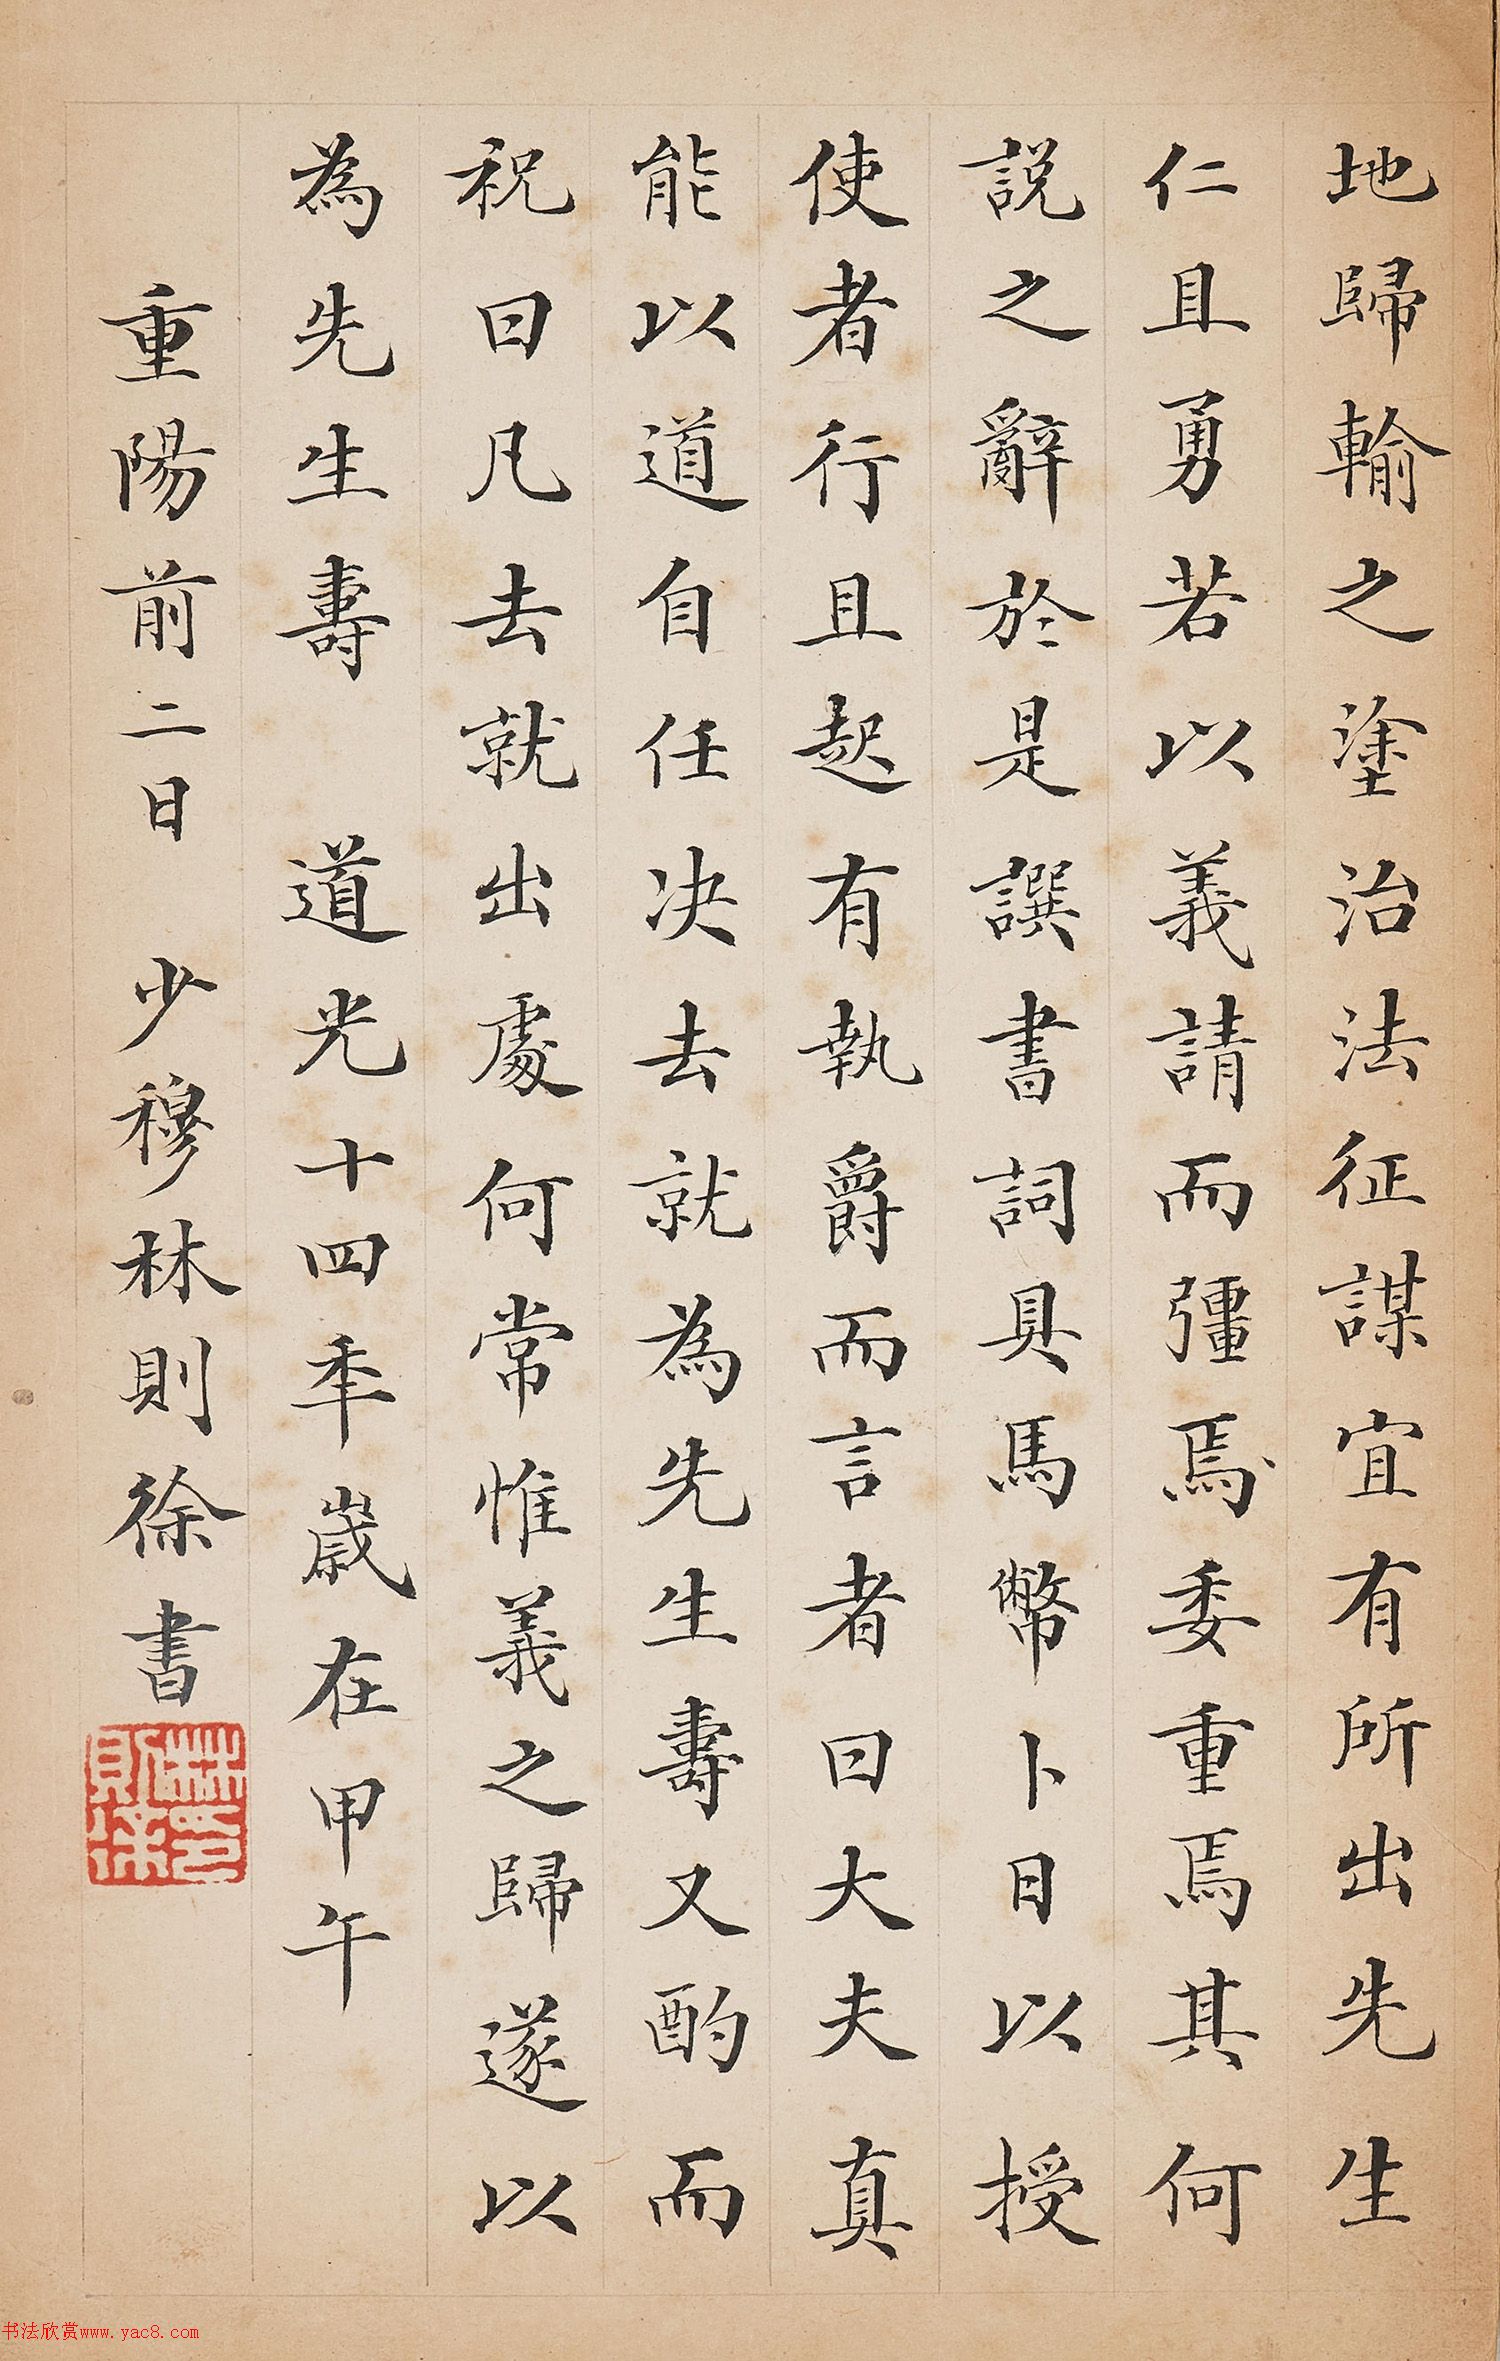 地歸輸之塗治法征謀宜有所出先生
仁且勇若以義請而彊焉委重焉其何
說之辭於是譔書詞具馬幣卜日以授
使者行且起有執爵而言者曰大夫真
能以道自任决去就為先生壽又酌而
祝曰凡去就出處何常惟義之歸遂以
為先生壽 道光十四年歲在甲午
重陽前二日 少穆林則徐書
林則徐印
书法欣赏www.yac8.com